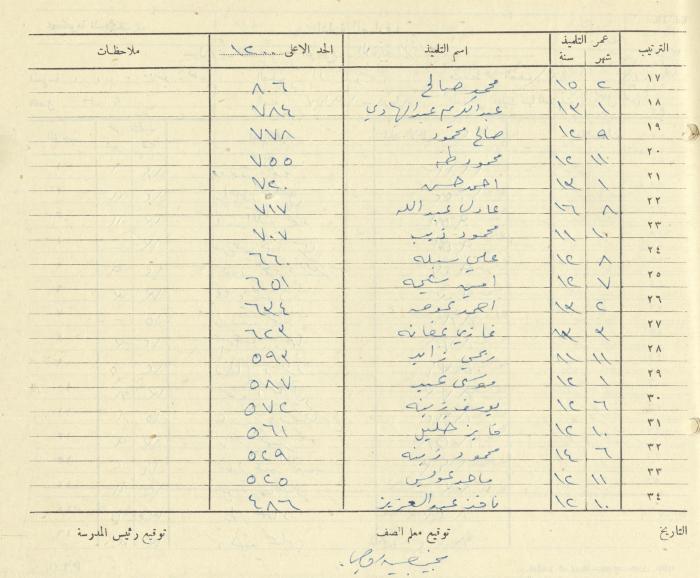 الترتيب عمر التلميذ شهر سنة اسم التلميذ الحد الاعلى ١٢٠٠ ملاحظات
١٧ ٢ ١٥ محمد صالح ٨٠٦
١٨ ١ ١٣ عبد الكريم عبد الهادي ٧٨٤
١٩ ٩ ١٢ صالح محمود ٧٧٨
٢٠ ١١ ١٢ محمود طه ٧٥٥
٢١ ١ ١٣ احمد حسن ٧٢٠
٢٢ ٨ ١٦ عادل عبد الله ٧١٧
٢٣ ١٠ ١١ محمود ذيب ٧٠٧
٢٤ ٨ ١٢ علي ٦٦٠
٢٥ ٧ ١٢ امين ٦٥١
٢٦ ٢ ١٣ احمد ٦٣٤
٢٧ ٣ ١٣ غازي ٦٢٣
٢٨ ١١ ١١ ربحي زايد ٥٩٣
٢٩ ١ ١٢ موسى عبيد ٥٨٧
٣٠ ٦ ١٢ يوسف زينه ٥٧٢
٣١ ١٠ ١٢ فايز خليل ٥٦١
٣٢ ٦ ١٤ محمود زينه ٥٢٩
٣٣ ١١ ١٢ ماجد عويس ٥٢٥
٣٤ ١٠ ١٢ نافذ عبد العزيز ٤٨٦
التاريخ توقيع معلم الصف توقيع رئيس المدرسة